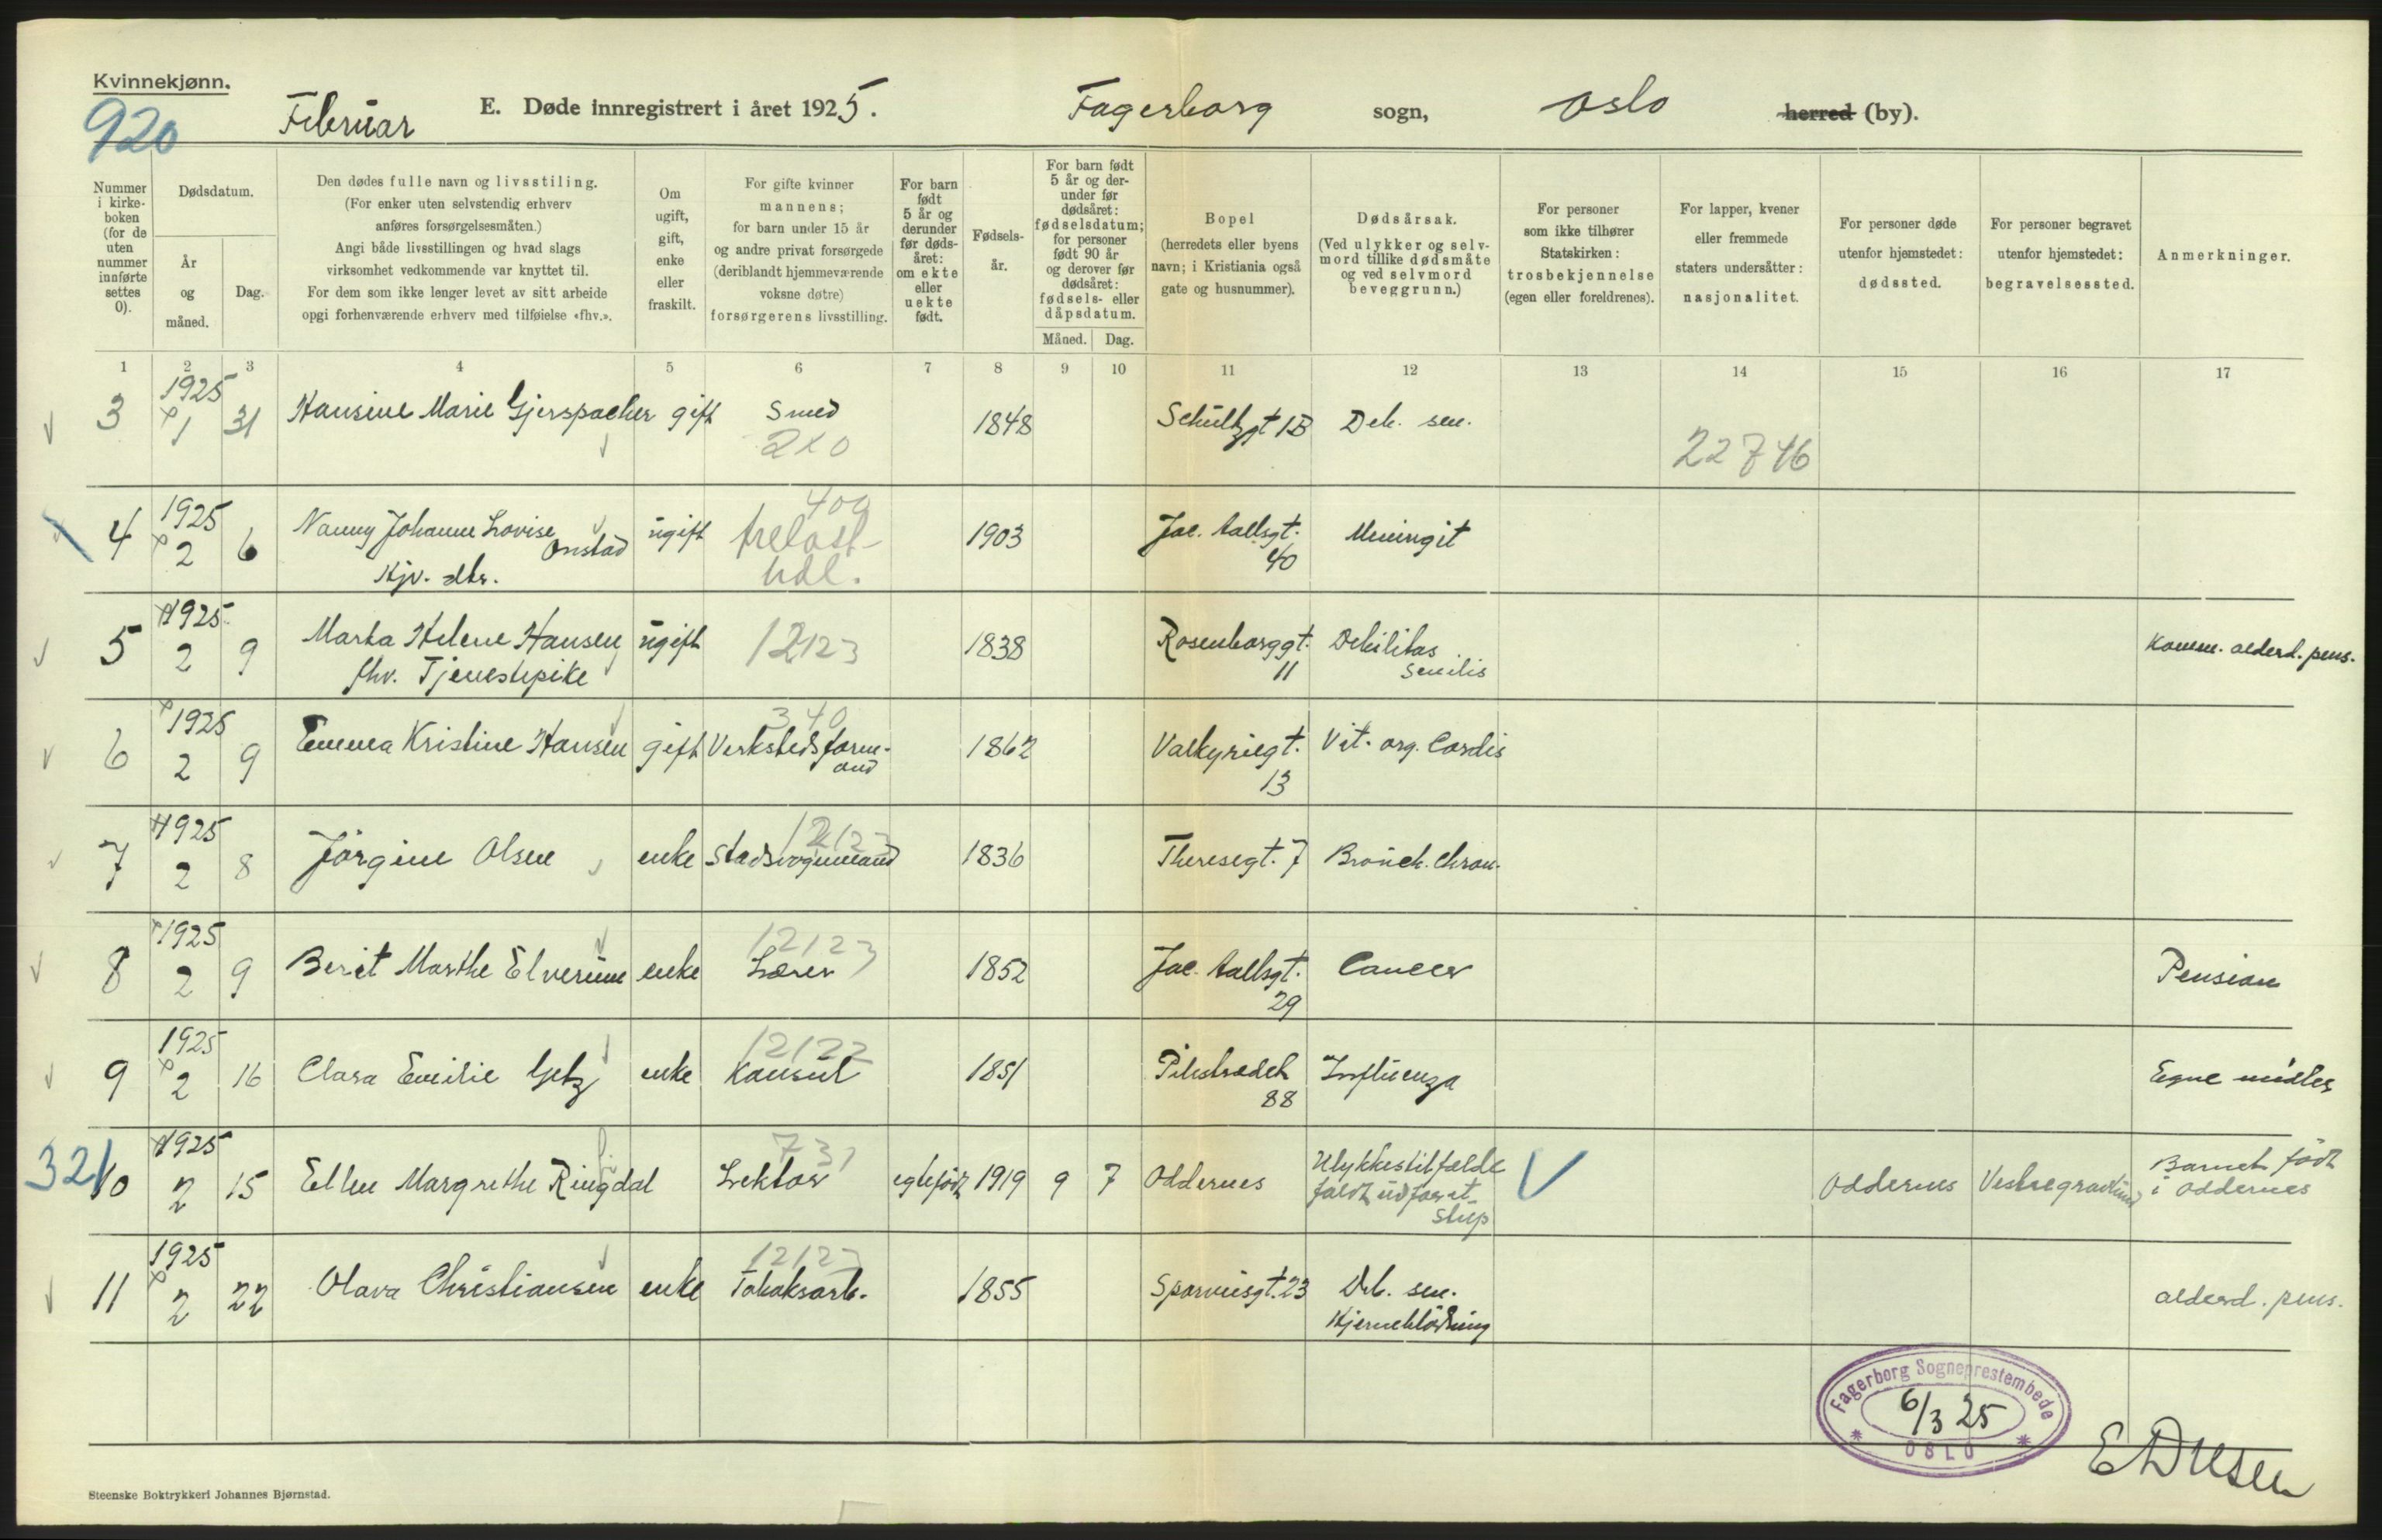 Kvinnekjønn.
920
Februar
E. Døde innregistrert i året 1925.
Fagerborg sogn, Oslo herred (by).
Nummer
i kirke-
boken
(for de
uten
nummer
innførte
settes
0).
Dødsdatum.
År
og
måned.
Dag.
Den dødes fulle navn og livsstiling.
(For enker uten selvstendig erhverv
anføres forsørgelsesmåten.)
Angi både livsstillingen og hvad slags
virksomhet vedkommende var knyttet til.
For dem som ikke lenger levet av sitt arbeide
opgi forhenværende erhverv med tilføielse «fhv.».
Om
ugift,
gift,
enke
eller
fraskilt.
For gifte kvinner
mannens;
for barn under 15 år
og andre privat forsørgede
(deriblandt hjemmeværende
voksne døtre)
forsørgerens livsstilling.
For barn
født
5 år og
derunder
før døds-
året:
om ekte
eller
uekte
født.
Fødsels-
år.
For barn født
5 år og der-
under før
dødsåret:
fødselsdatum;
for personer
født 90 år
og derover før
dødsåret:
fødsels- eller
dåpsdatum.
Måned. Dag.
Bopel
(herredets eller byens
navn; i Kristiania også
gate og husnummer).
Dødsårsak.
(Ved ulykker og selv-
mord tillike dødsmåte
og ved selvmord
beveggrunn.)
For personer
som ikke tilhører
Statskirken:
trosbekjennelse
(egen eller foreldrenes).
For lapper, kvener
eller fremmede
staters undersåtter:
nasjonalitet.
For personer døde
utenfor hjemstedet:
dødssted.
For personer begravet
utenfor hjemstedet:
begravelsessted.
Anmerkninger.
1 2 3 4 5 6 7 8 9 10 11 12 13 14 15 16 17
1925
3 1 31 Hansine Marie Gjerspacher gift Smed 1848 Schultzgt 1B Deb. sen.
210
22746
1925 400
4 2 6 Nanny Johanne Lovise Onstad ugift trelast- 1903 Jac. Aallsgt. Meningit
Hjv. dtr. hdl. 40
1925
5 2 9 Marta Helene Hansen ugift 12123 1838 Rosenborggt. Debilitas Komm. alderd. pens.
fhv. Tjenestepike 11 senilis
1925 340
6 2 9 Emma Kristine Hansen gift Verkstedsform- 1862 Valkyriegt. Vit. org. Cordis
and 13
1925 12123
7 2 8 Jörgine Olsen enke Stadsvognmand 1836 Theresegt. 7 Bronch. chron.
1925 12123
8 2 9 Berit Marthe Elverum enke Lærer 1852 Jac. Aallsgt. Cancer Pension
29
1925 12122
9 2 16 Clara Emilie Getz enke Konsul 1851 Pilestrædet Influenza Egne midler
88
321 1925 731
10 2 15 Ellen Margrethe Ringdal Lektor egtefödt 1919 9 7 Oddernes Ulykkestilfælde Oddernes Vestregravlund Barnet født
faldt udfor et i Oddernes
stup
1925 12123
11 2 22 Olava Christiansen enke Tobaksarb. 1855 Sporveisgt. 23 Deb. sen. alderd. pens.
Hjerneblödning
Fagerborg Sogneprestembede
6/3 25
OSLO
Steenske Boktrykkeri Johannes Bjørnstad.